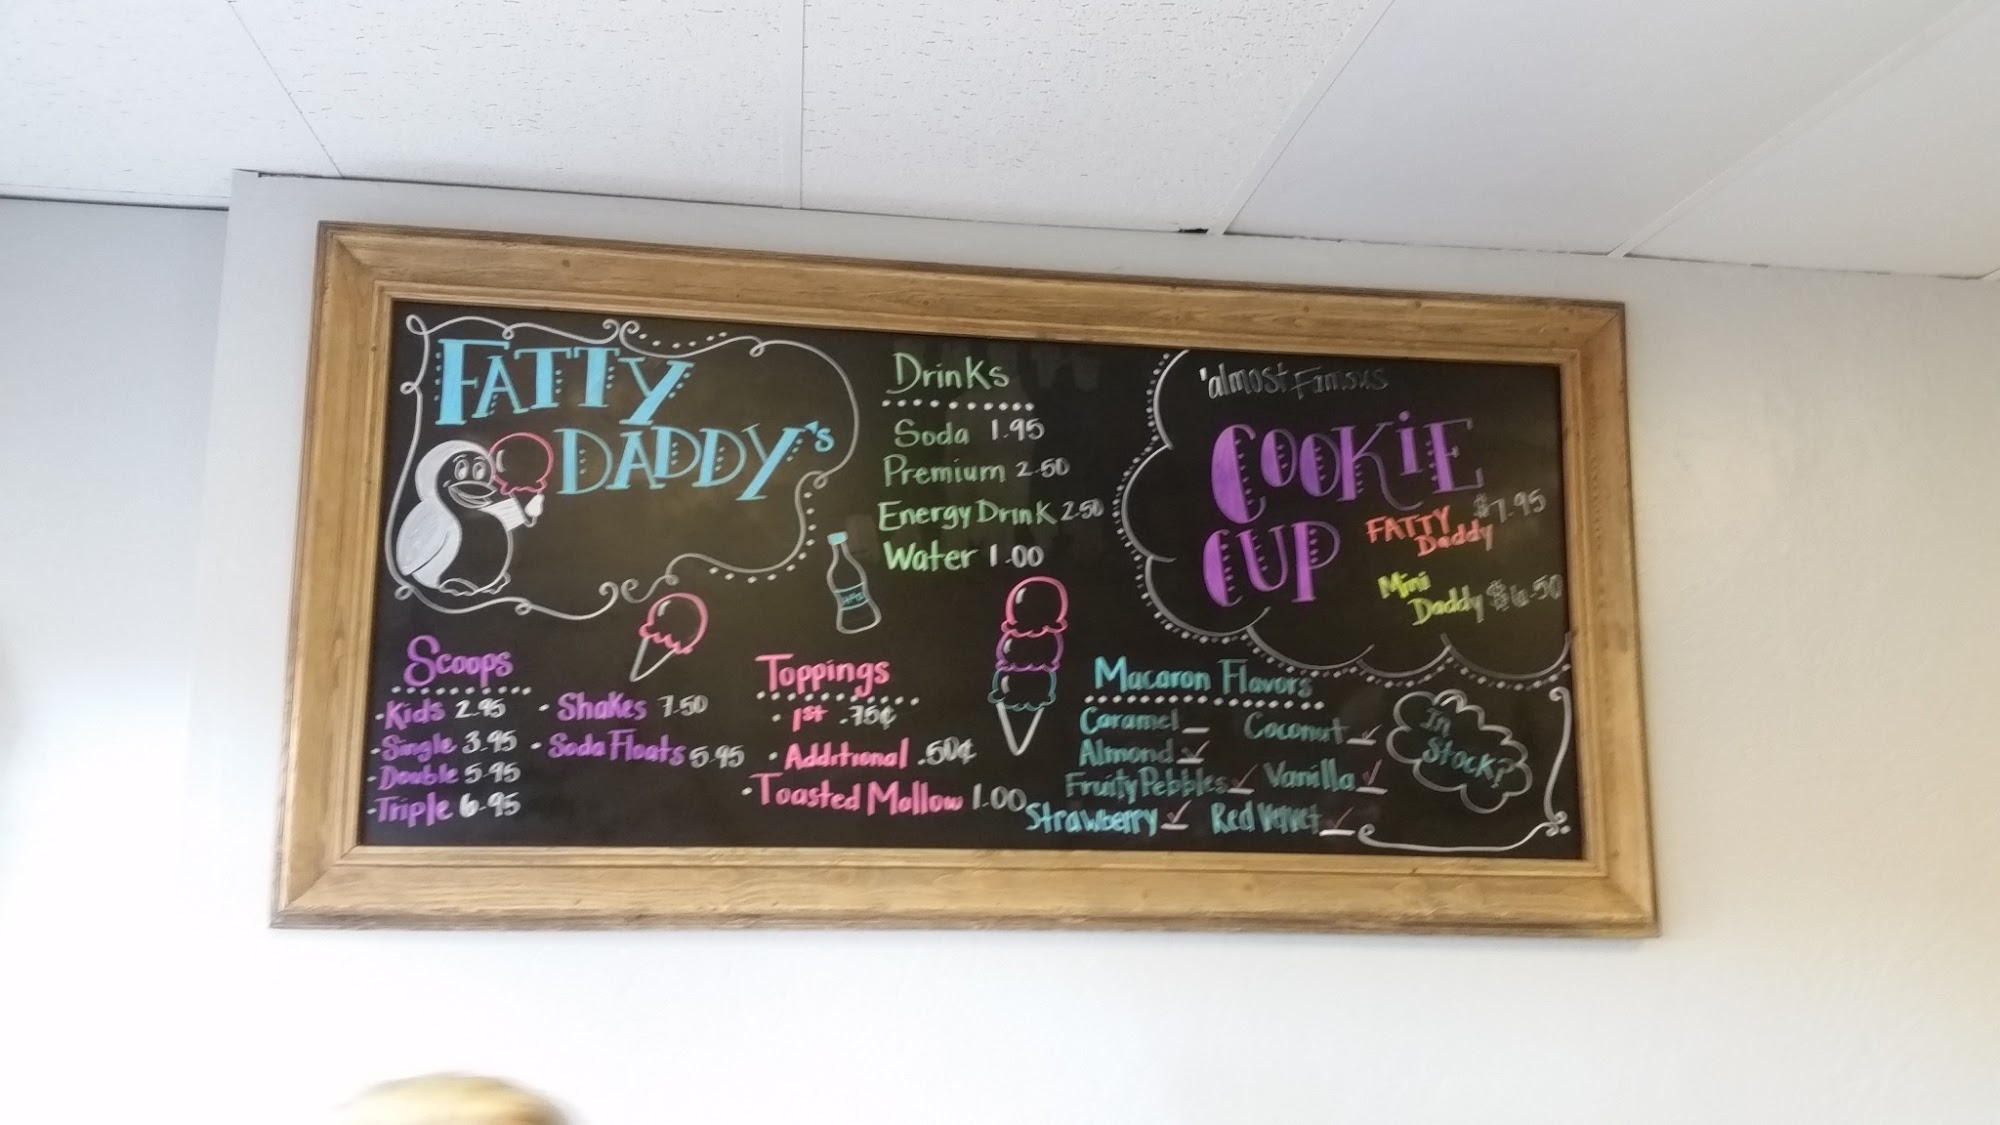 FATTY
DADDY's
Drinks
Soda 1.95
Premium 2.50
Energy Drink 2.50
Water 1.00
'almost Famous
COOKiE
CUP
FATTY Daddy $7.95
Mini Daddy $6.50
Scoops
·Kids 2.95
·Single 3.95
·Double 5.95
·Triple 6.95
·Shakes 7.50
·Soda Floats 5.95
Toppings
·1st .75¢
·Additional .50¢
·Toasted Mallow 1.00
Macaron Flavors
Caramel Coconut ✓
Almond ✓
Fruity Pebbles ✓ Vanilla ✓
Strawberry ✓ Red Velvet ✓
In
Stock?